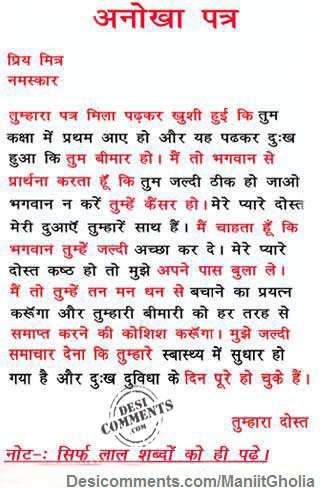 अनोखा पत्र
प्रिय मित्र
नमस्कार
तुम्हारा पत्र मिला पढ़कर खुशी हुई कि तुम
कक्षा में प्रथम आए हो और यह पढकर दुःख
हुआ कि तुम बीमार हो। मैं तो भगवान से
प्रार्थना करता हूँ कि तुम जल्दी ठीक हो जाओ
भगवान न करें तुम्हें कैंसर हो। मेरे प्यारे दोस्त
मेरी दुआएँ तुम्हारें साथ हैं। मैं चाहता हूँ कि
भगवान तुम्हें जल्दी अच्छा कर दे। मेरे प्यारे
दोस्त कष्ठ हो तो मुझे अपने पास बुला ले।
मैं तो तुम्हें तन मन धन से बचाने का प्रयत्न
करूँगा और तुम्हारी बीमारी को हर तरह से
समाप्त करने की कोशिश करूँगा। मुझे जल्दी
समाचार देना कि तुम्हारे स्वास्थ्य में सुधार हो
गया है और दुःख दुविधा के दिन पूरे हो चुके हैं।
DESI
COMMENTS
.COM
तुम्हारा दोस्त
नोट-: सिर्फ लाल शब्दों को ही पढे।
Desicomments.com/ManiitGholia